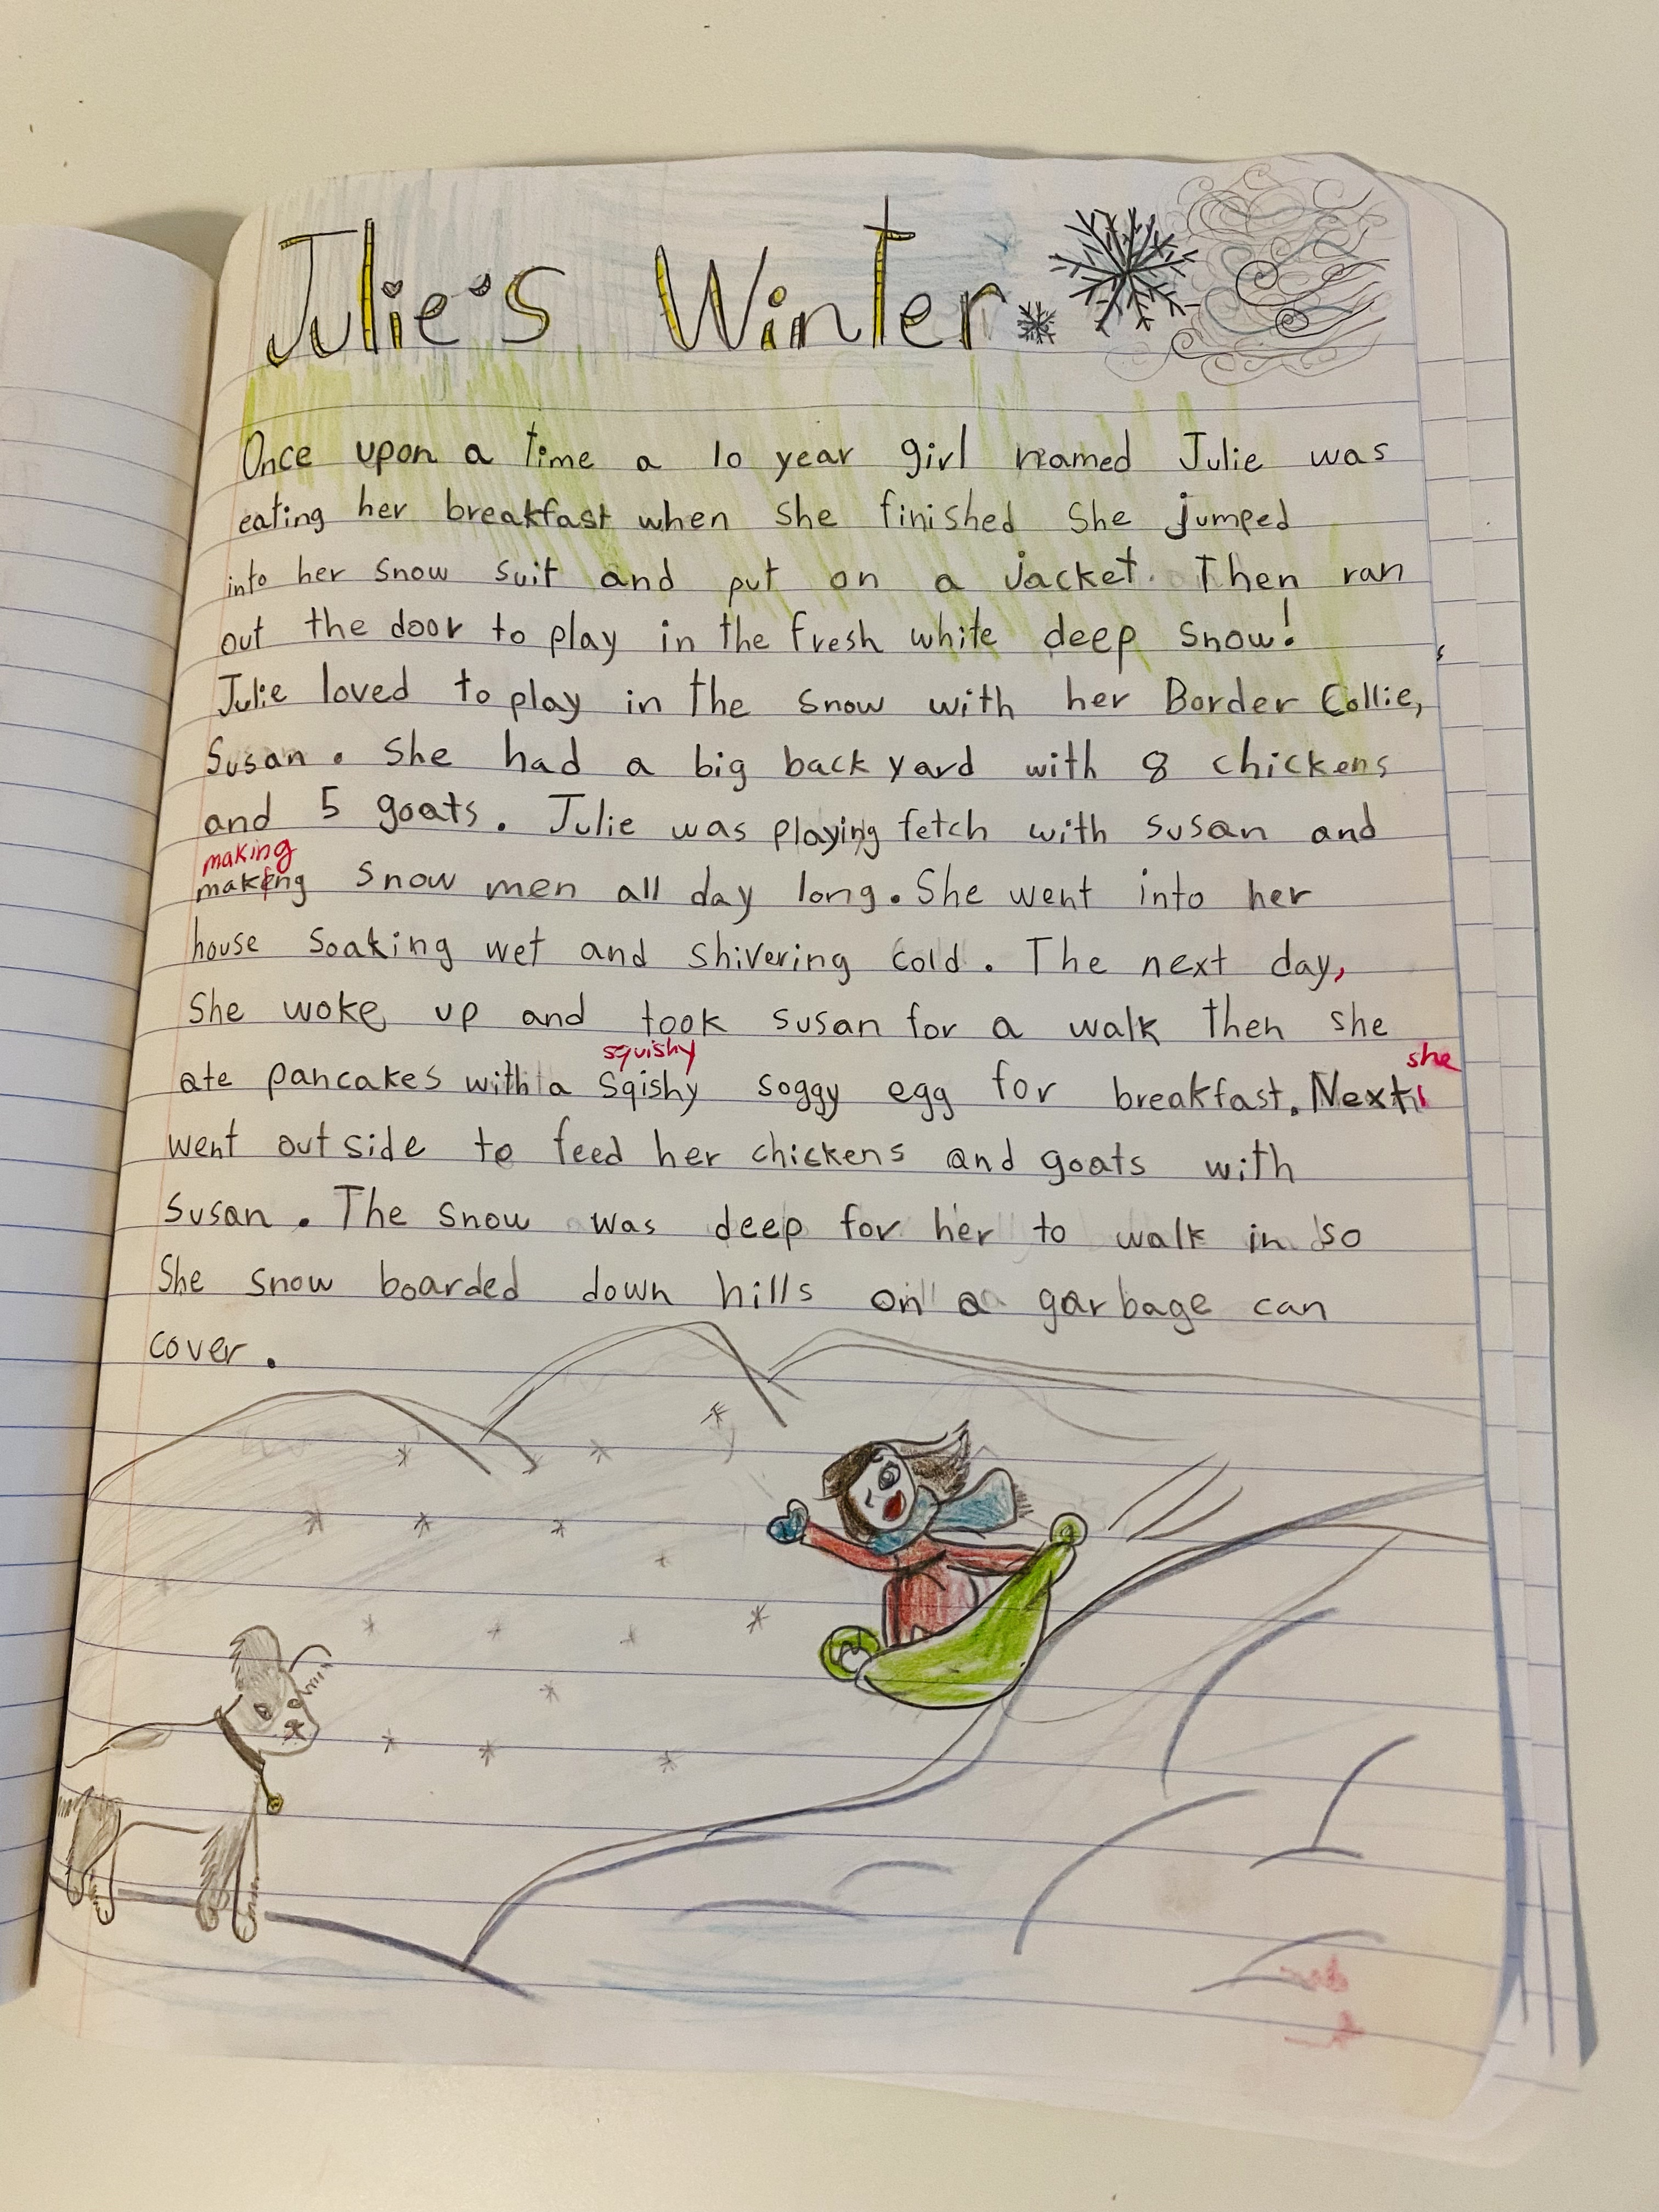 Julie's Winter.
Once upon a time a 10 year girl named Julie was
eating her breakfast when she finished she jumped
into her snow suit and put on a jacket. Then ran
out the door to play in the fresh white deep snow!
Julie loved to play in the snow with her Border Collie,
Susan. She had a big back yard with 8 chickens
and 5 goats. Julie was playing fetch with susan and
making
making snow men all day long. She went into her
house soaking wet and shivering cold. The next day,
She woke up and took susan for a walk then she
squishy she
ate pancakes with a sqishy soggy egg for breakfast. Next,
went out side to feed her chickens and goats with
susan. The snow was deep for her to walk in so
She snow boarded down hills on a garbage can
cover.